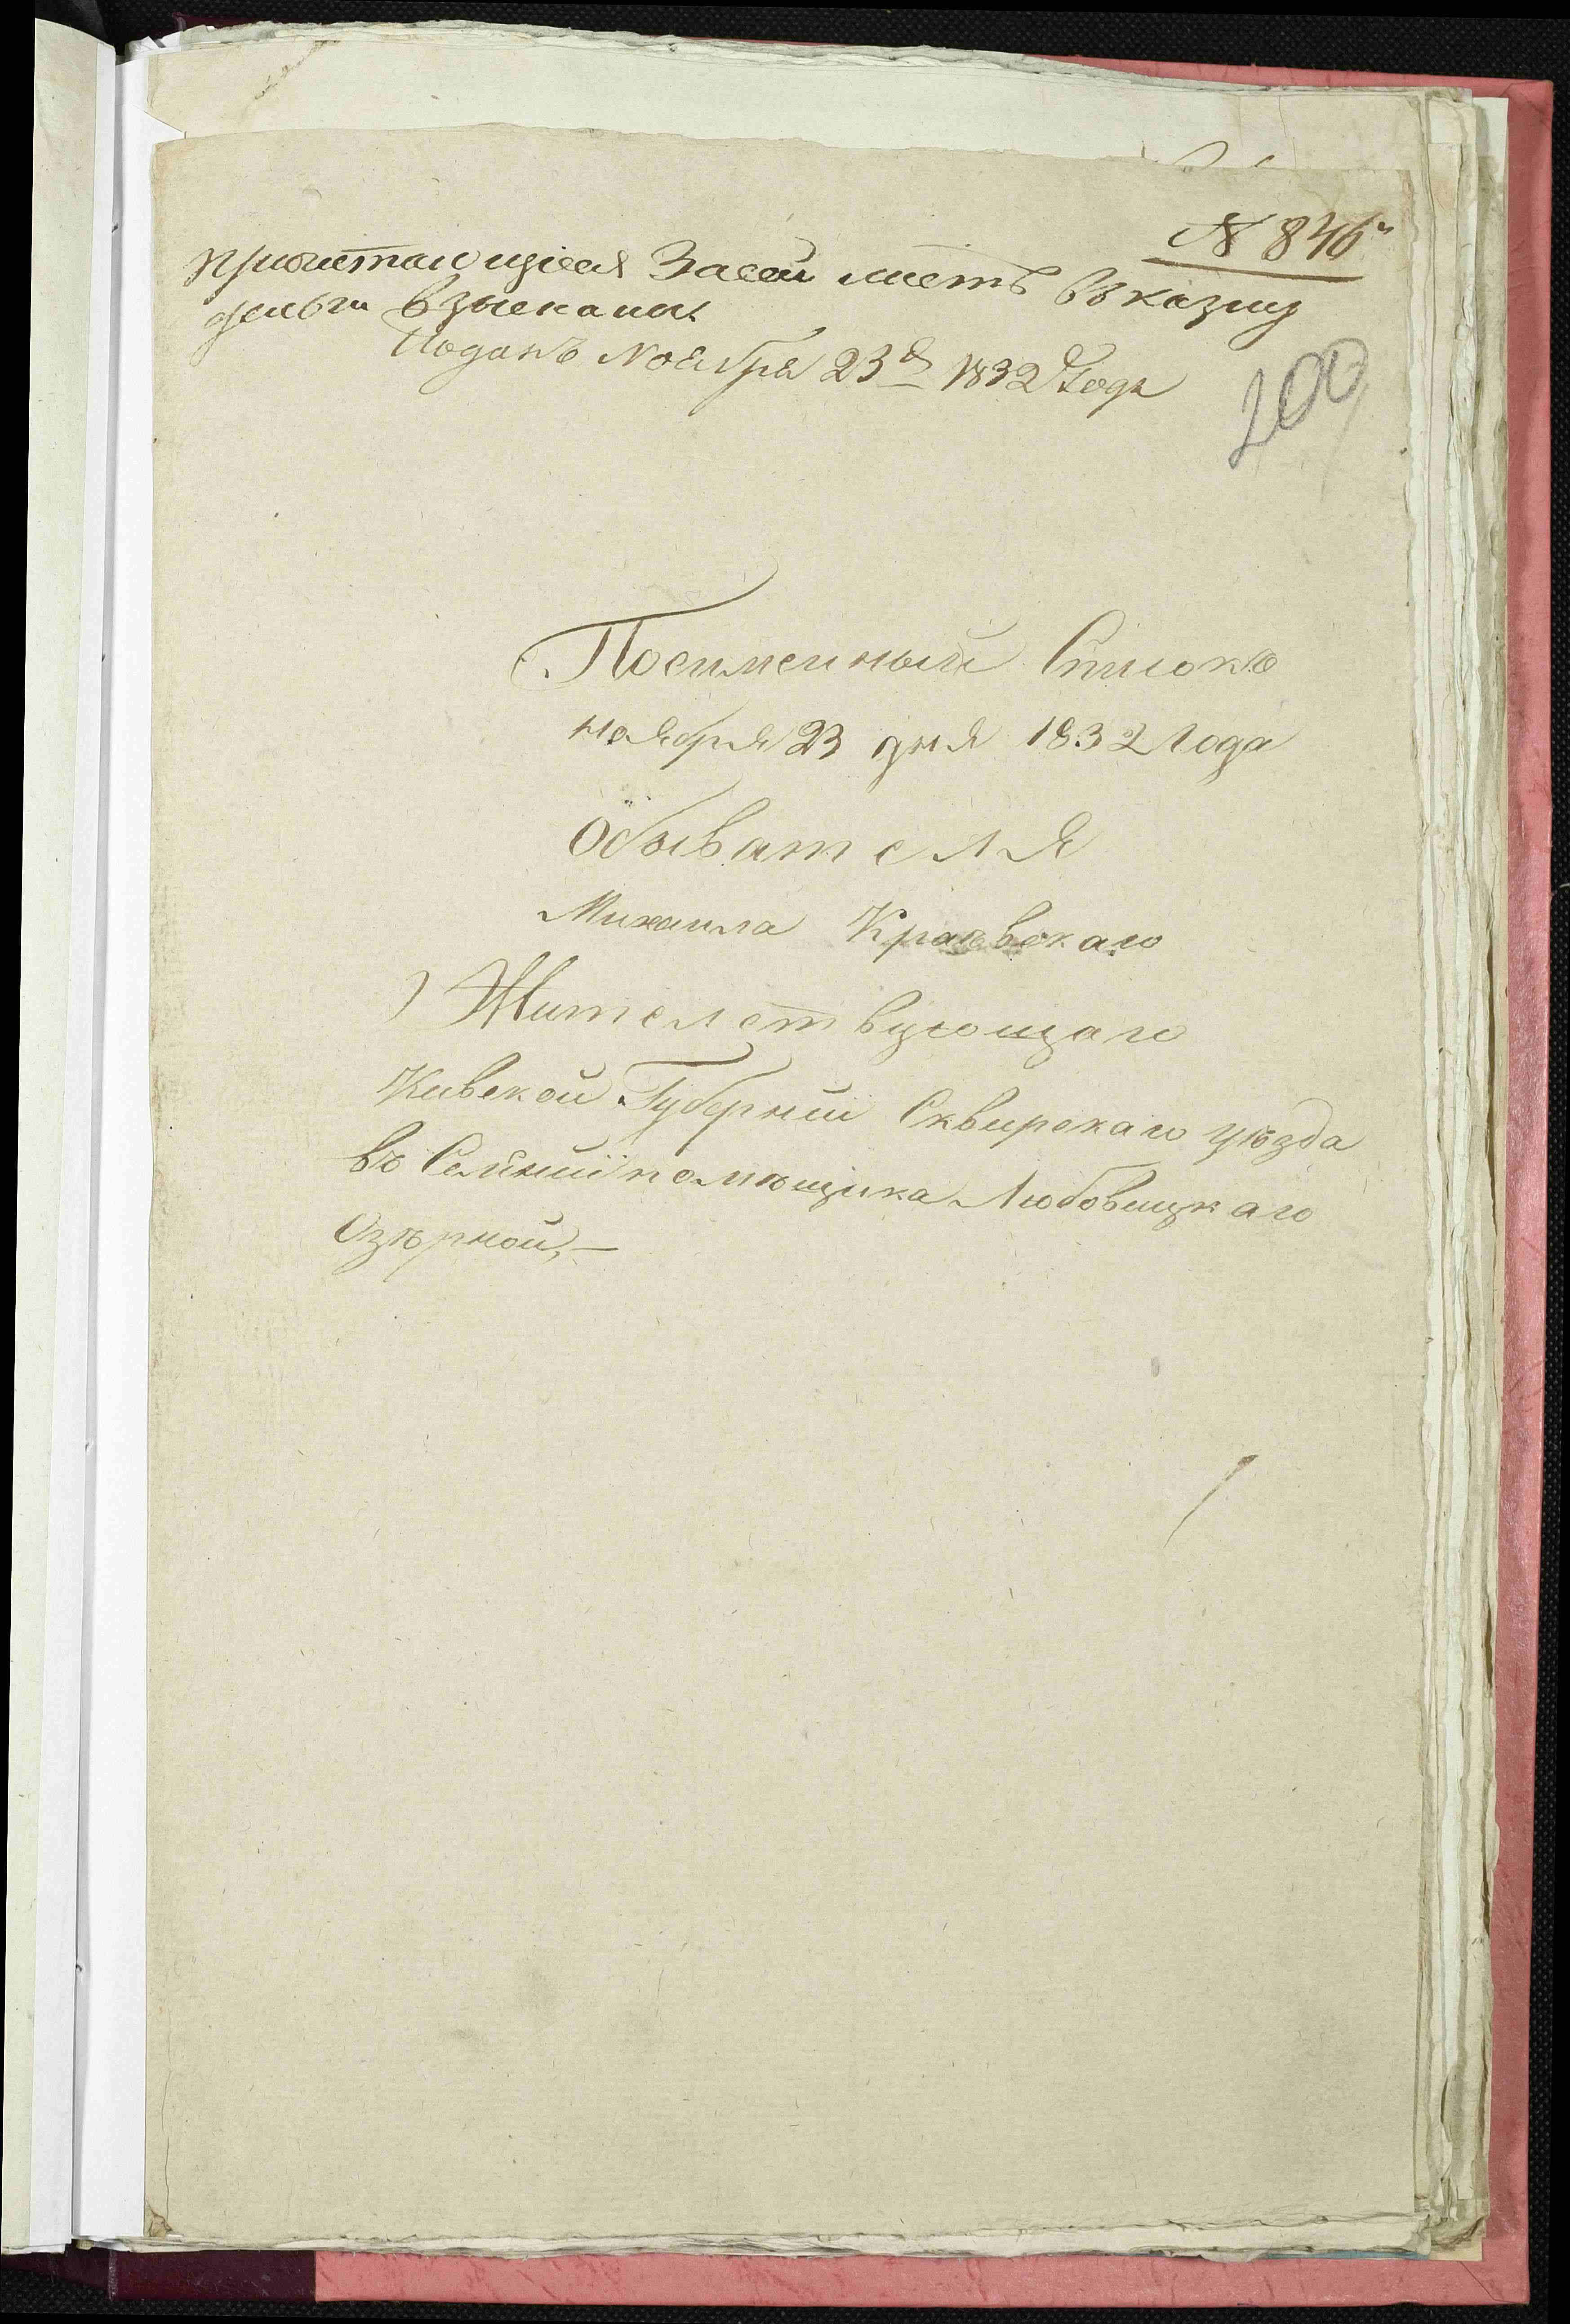 № 846
причитающіеся За сей листъ въ казну
деньги взысканы.
Поданъ Ноября 23 д 1832 Года
200
Поеименный Список
ноября 23 дня 1832 Года
Обывателя
Михаила Краевскаго
Жителствующаго
Киевской Губернии Сквирскаго уѣзда
въ Селении помѣщика Любовицкаго
Озѣрной,—